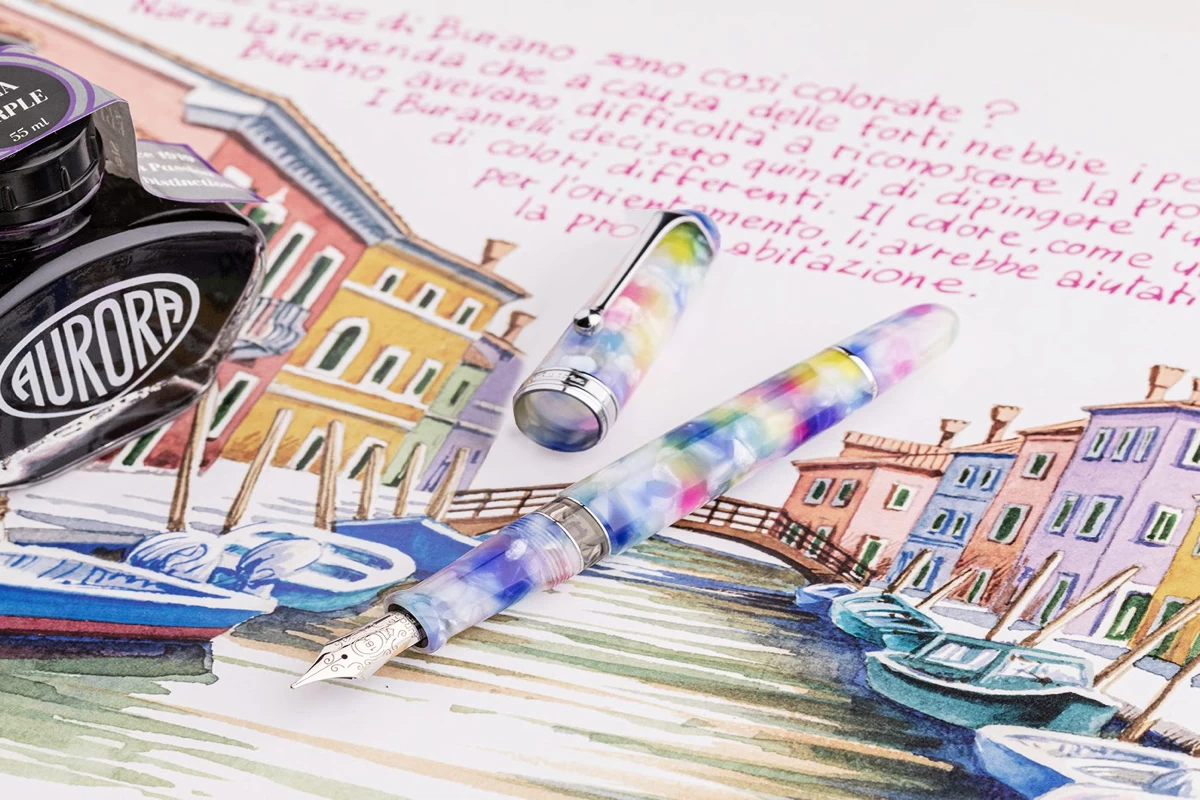 case di Burano sono così colorate?
Narra la leggenda che a causa delle forti nebbie i
Burano avevano difficoltà a riconoscere la
I Buranelli decisero quindi di dipingere
di colori differenti. Il colore, come
per l'orientamento, li avrebbe aiutati
la abitazione.
55 ml
AURORA